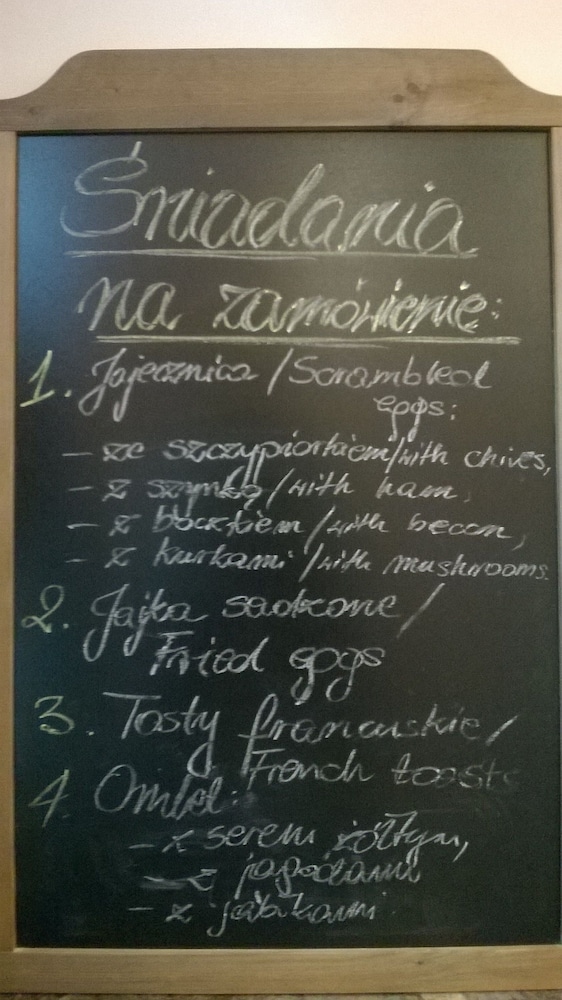 Śniadania
na zamówienie:
1. Jajecznica / Scrambled
eggs:
- ze szczypiorkiem/with chives,
- z szynką / with ham,
- z boczkiem / with becon,
- z kurkami / with mushrooms.
2. Jajka sadzone /
Fried eggs
3. Tosty francuskie /
French toasts
4. Omlet:
- z serem żółtym,
- z jagodami
- z jabłkami.